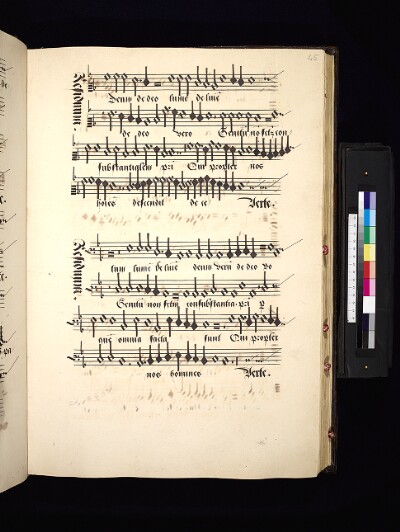 Residuum.
Deum de deo lume de lume
de deo vero Genitu no fctu con
substantialem pri Qui propter nos
hoies descendit de ce Verte.
Residuum.
lum lume de lume deum veru de deo vo
Genitu non fctu consubstantia pri p
que omnia facta sunt Qui propter
nos homines Verte.